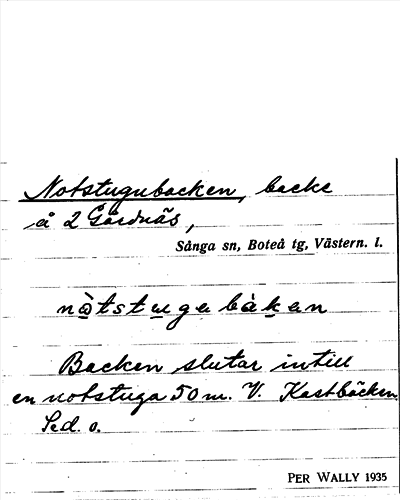 Notstugubacken, backe
å 2 Gårdnäs,
Sånga sn, Boteå tg, Västern. l.
nòtstugubàkan
Backen slutar intill
en notstuga 50 m. V. Kastbäcken.
Sed. o.
PER WALLY 1935